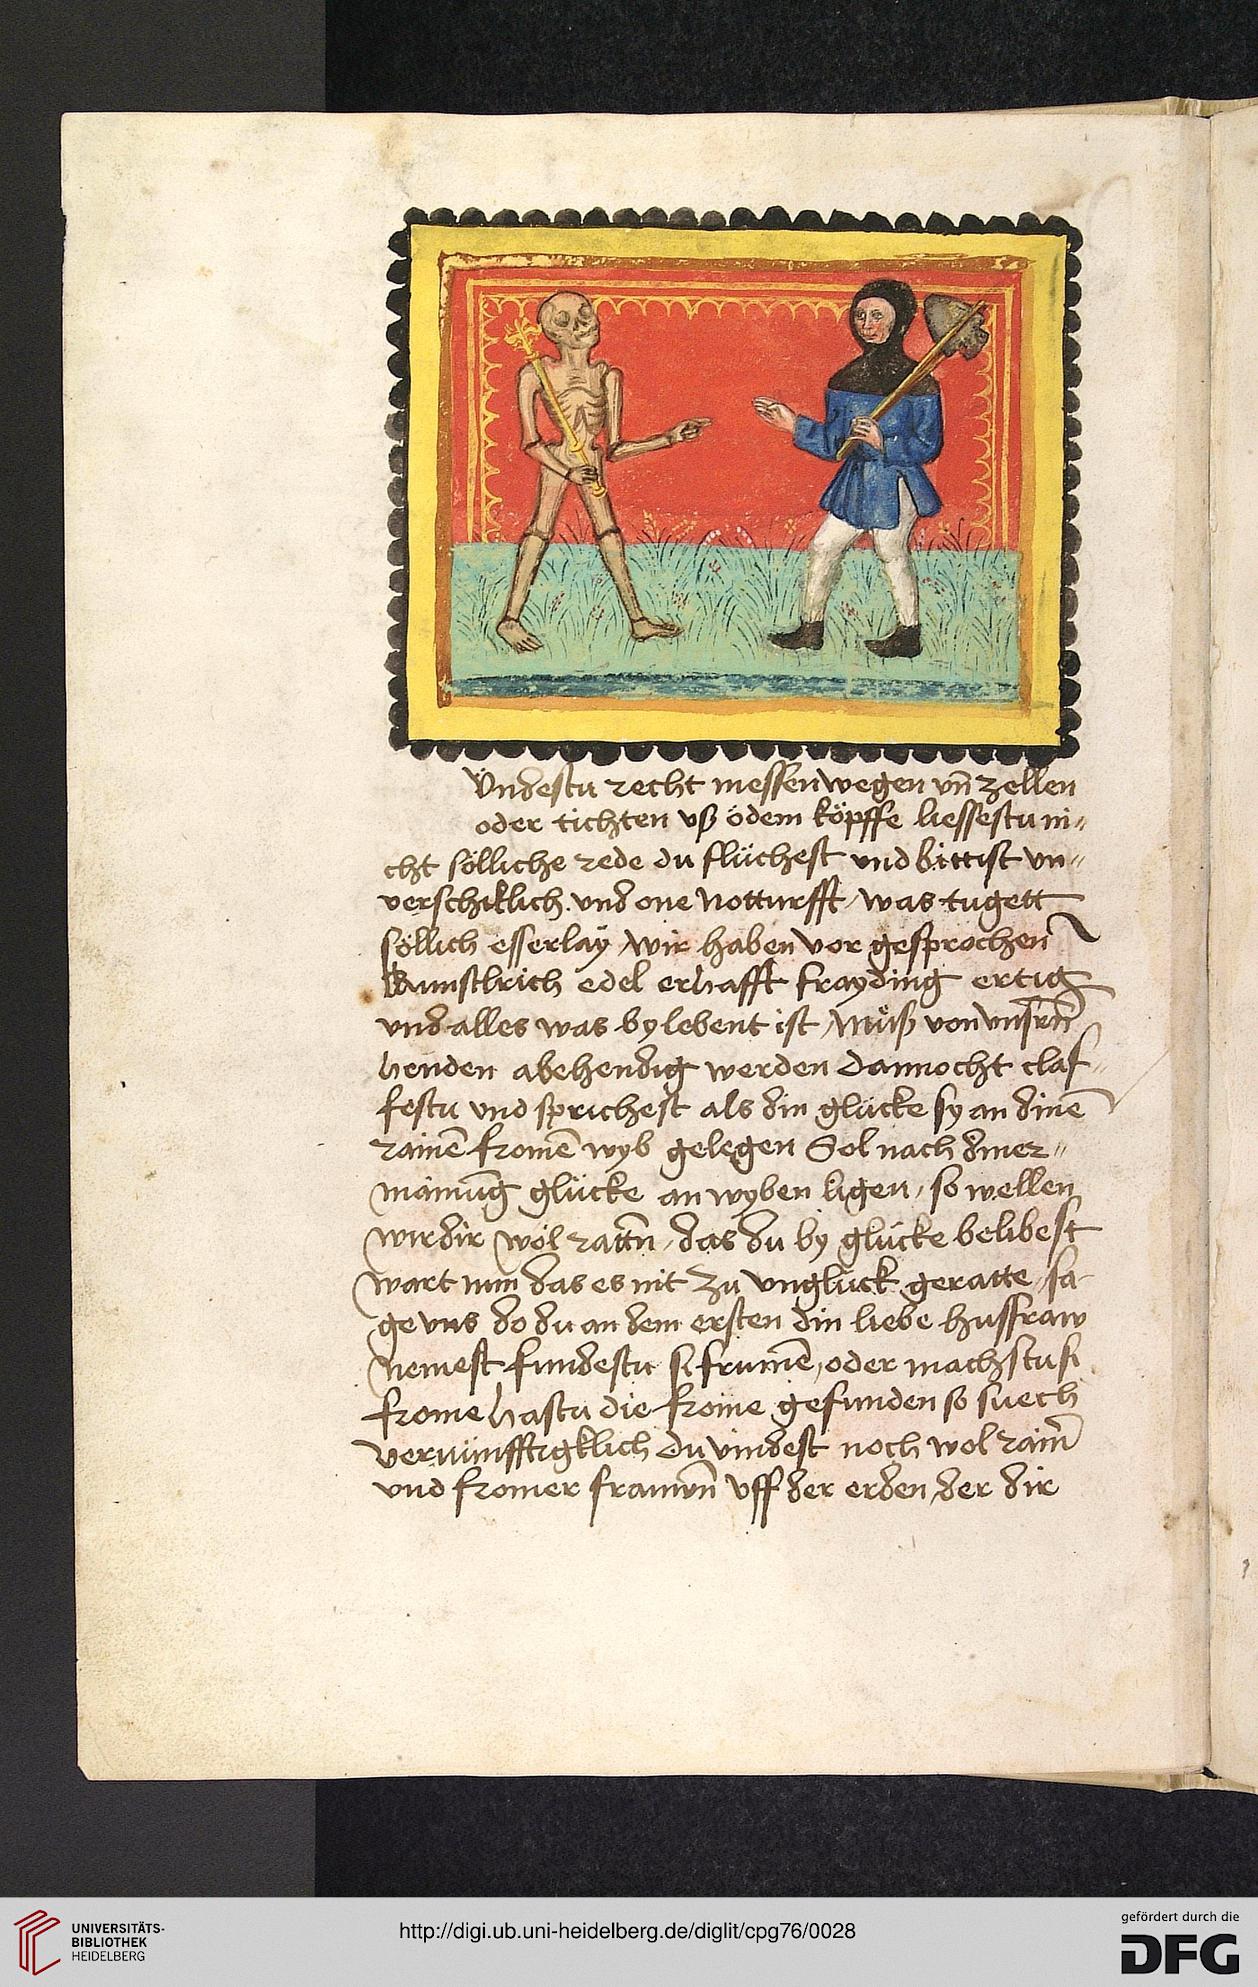 Vndestu recht messen wegen vn̄ zellen
oder tichten vß ödem köpffe liessestu ni„
cht sölliche rede du flüchest und bittist vn„
verschiklich und one notturfft / was tugett
söllich esserlaÿ / wir haben vor gesprochen
kunstlrich edel erhafft frayding ertig
vnd alles was by lebent ist / Müß von vnsrn̄
henden abehendig werden dannocht claf„
festu vnd sprichest als din glücke sy an dinē
rainē fromē wyb gelegen Sol nach diner„
mainūg glücke an wyben ligen / so wellen
wir dir wol rattn̄ / das du by glücke belibest
wart nun das es nit zu vnglück geratte / sa„
ge vns do du an dem ersten din liebe husfraw
nemest fundestu si frumē / oder machstu si
frome hastu die frome gefunden so suech
vernünfftigklich du vindest noch wol rain̄
vnd fromer frauwn̄ vff der erden / der dir
UNIVERSITÄTS-
BIBLIOTHEK
HEIDELBERG
http://digi.ub.uni-heidelberg.de/diglit/cpg76/0028
gefördert durch die
DFG